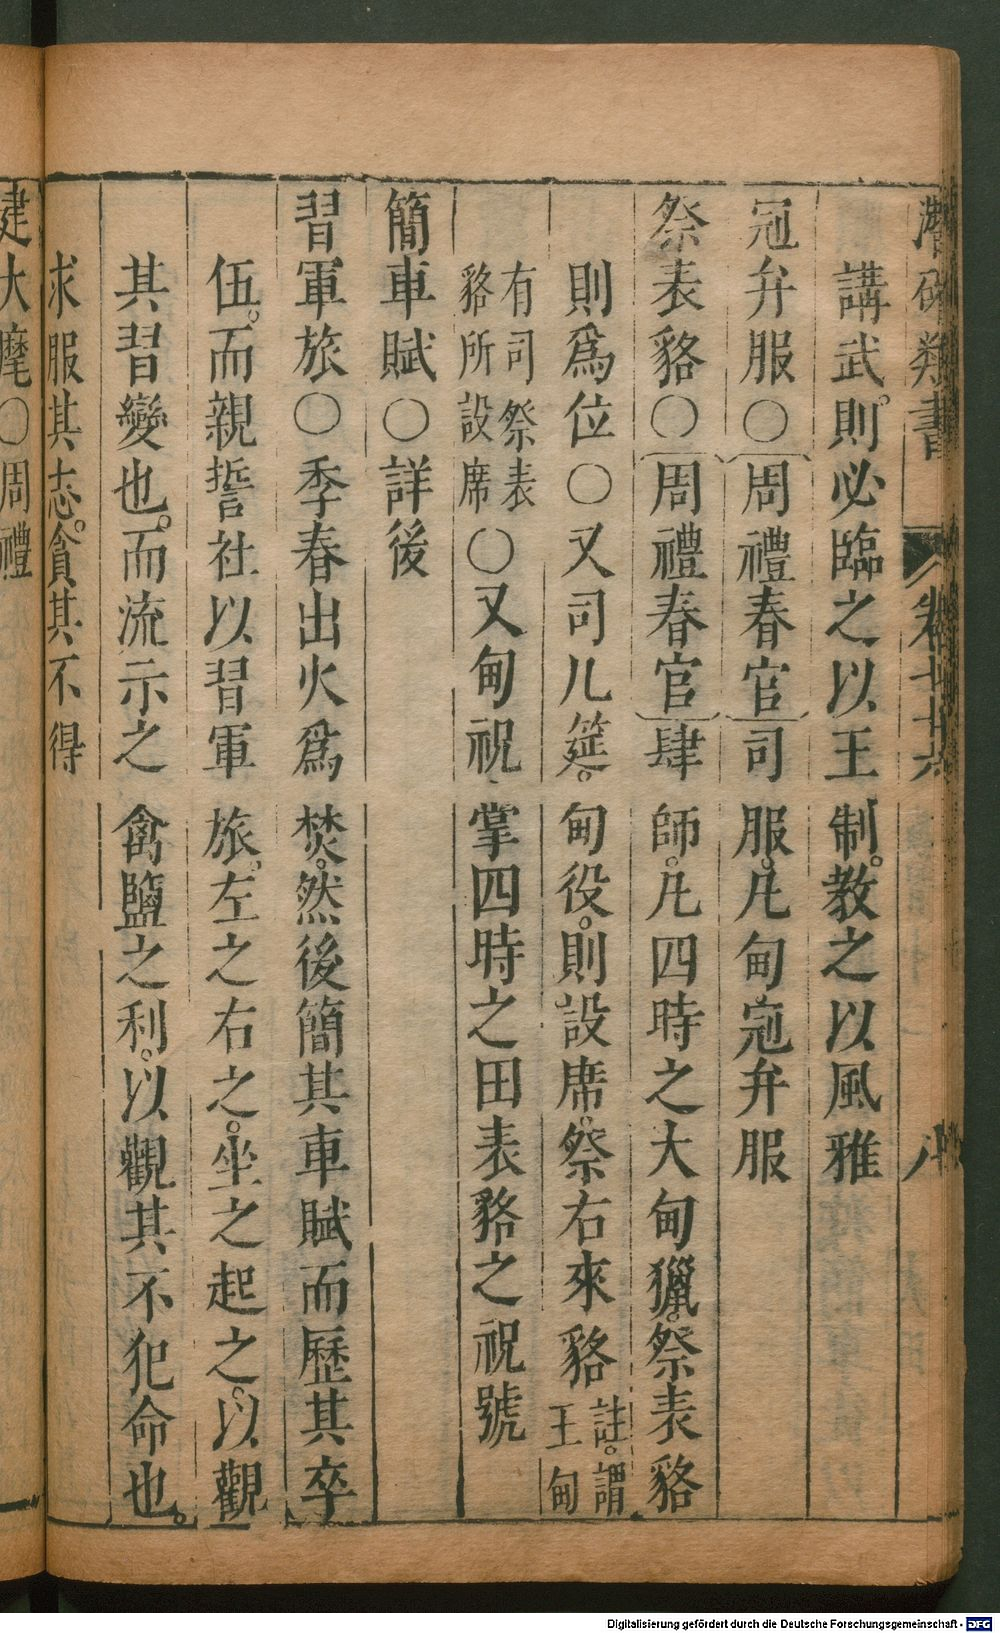 潛確類書 卷七十六 八
講武。則必臨之以王制。教之以風雅
冠弁服○周禮春官司服。凡甸冠弁服
祭表貉○周禮春官肆師。凡四時之大甸獵。祭表貉
則爲位○又司几筵。甸役。則設席。祭右來貉註。謂王甸
有司祭表貉所設席○又甸祝掌四時之田表貉之祝號
簡車賦○詳後
習軍旅○季春出火爲焚。然後簡其車賦而歷其卒
伍。而親誓社以習軍旅。左之右之。坐之起之。以觀
其習變也。而流示之禽鹽之利。以觀其不犯命也。
求服其志。貪其不得
建大麾○周禮
Digitalisierung gefördert durch die Deutsche Forschungsgemeinschaft - DFG